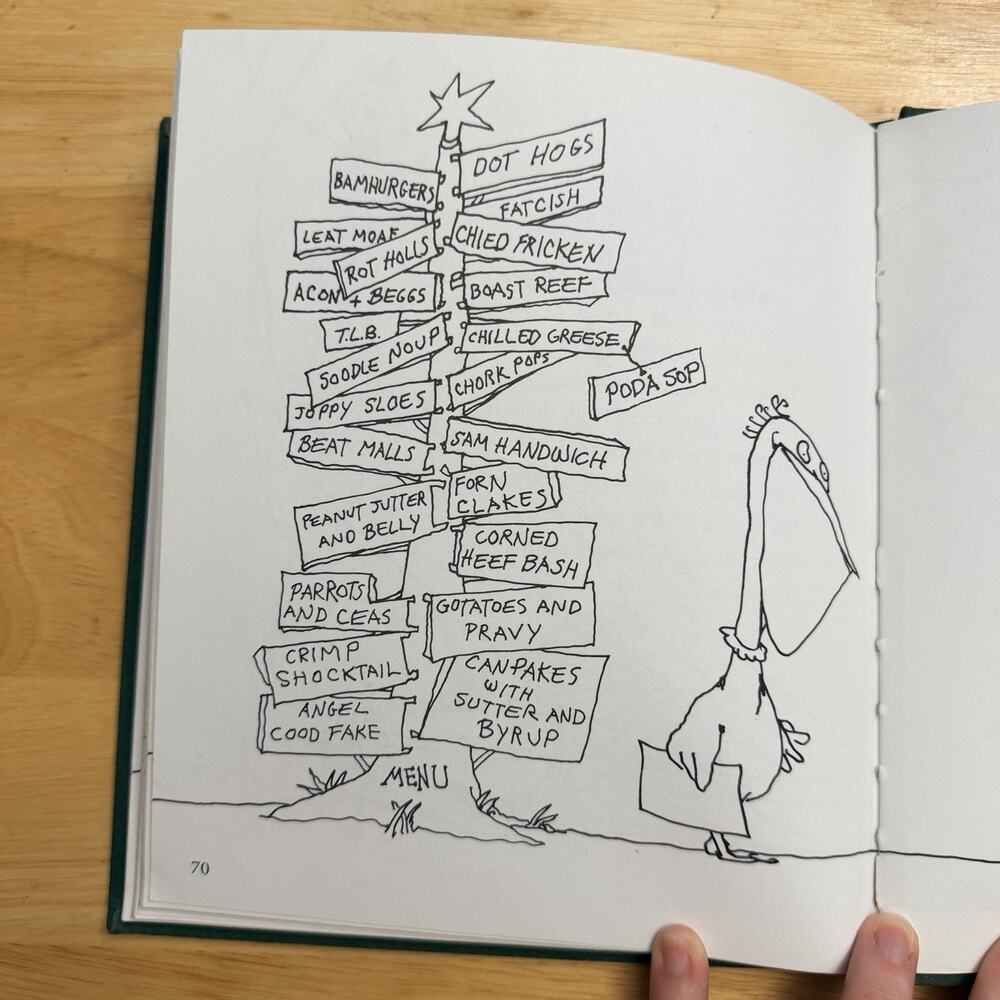 DOT HOGS
BAMHURGERS
FATCISH
LEAT MOAF
CHIED FRICKEN
ROT HOLLS
ACON + BEGGS
BOAST REEF
T.L.B.
CHILLED GREESE
SOODLE NOUP
CHORK POPS
PODA SOP
JOPPY SLOES
BEAT MALLS
SAM HANDWICH
FORN
CLAKES
PEANUT JUTTER
AND BELLY
CORNED
HEEF BASH
PARROTS
AND CEAS
GOTATOES AND
PRAVY
CRIMP
SHOCKTAIL
CANPAKES
WITH
SUTTER AND
BYRUP
ANGEL
COOD FAKE
MENU
70